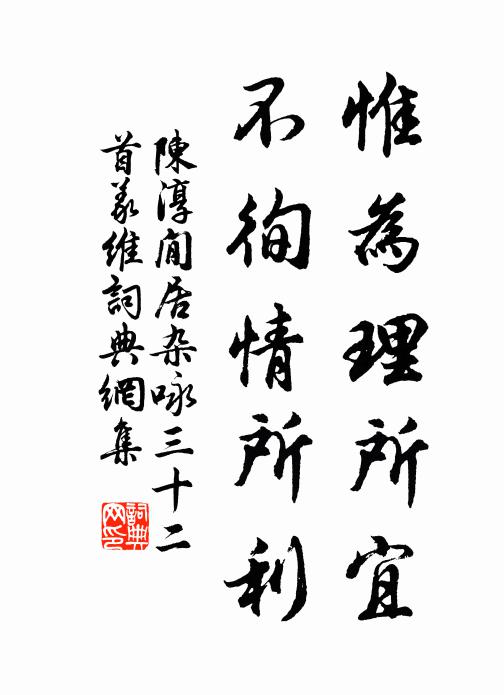 惟為理所宜
不徇情所利
陳淳閒居杂咏三十二
首義維詞典網集
詞典
网印